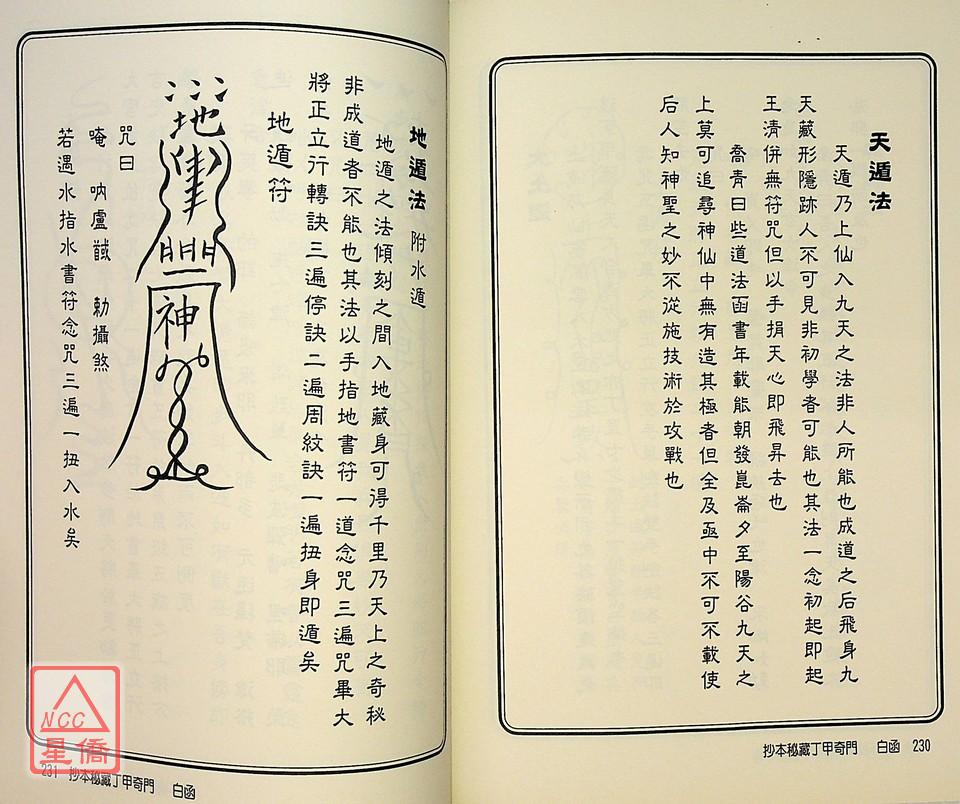 天遁法
天遁乃上仙入九天之法非人所能也成道之后飛身九
天藏形隱跡人不可見非初學者可能也其法一念初起即起
王清併無符咒但以手捐天心即飛昇去也
喬青曰些道法函書年載能朝發崑崙夕至陽谷九天之
上莫可追尋神仙中無有造其極者但全及亟中不可不載使
后人知神聖之妙不從施技術於攻戰也
抄本秘藏丁甲奇門 白函 230
地遁法 附水遁
地遁之法傾刻之間入地藏身可得千里乃天上之奇秘
非成道者不能也其法以手指地書符一道念咒三遍咒畢大
將正立行轉訣三遍停訣二遍周紋訣一遍扭身即遁矣
地遁符
地
神
咒曰
唵 吶盧 勅攝煞
若遇水指水書符念咒三遍一扭入水矣
231 抄本秘藏丁甲奇門 白函
NCC
星僑